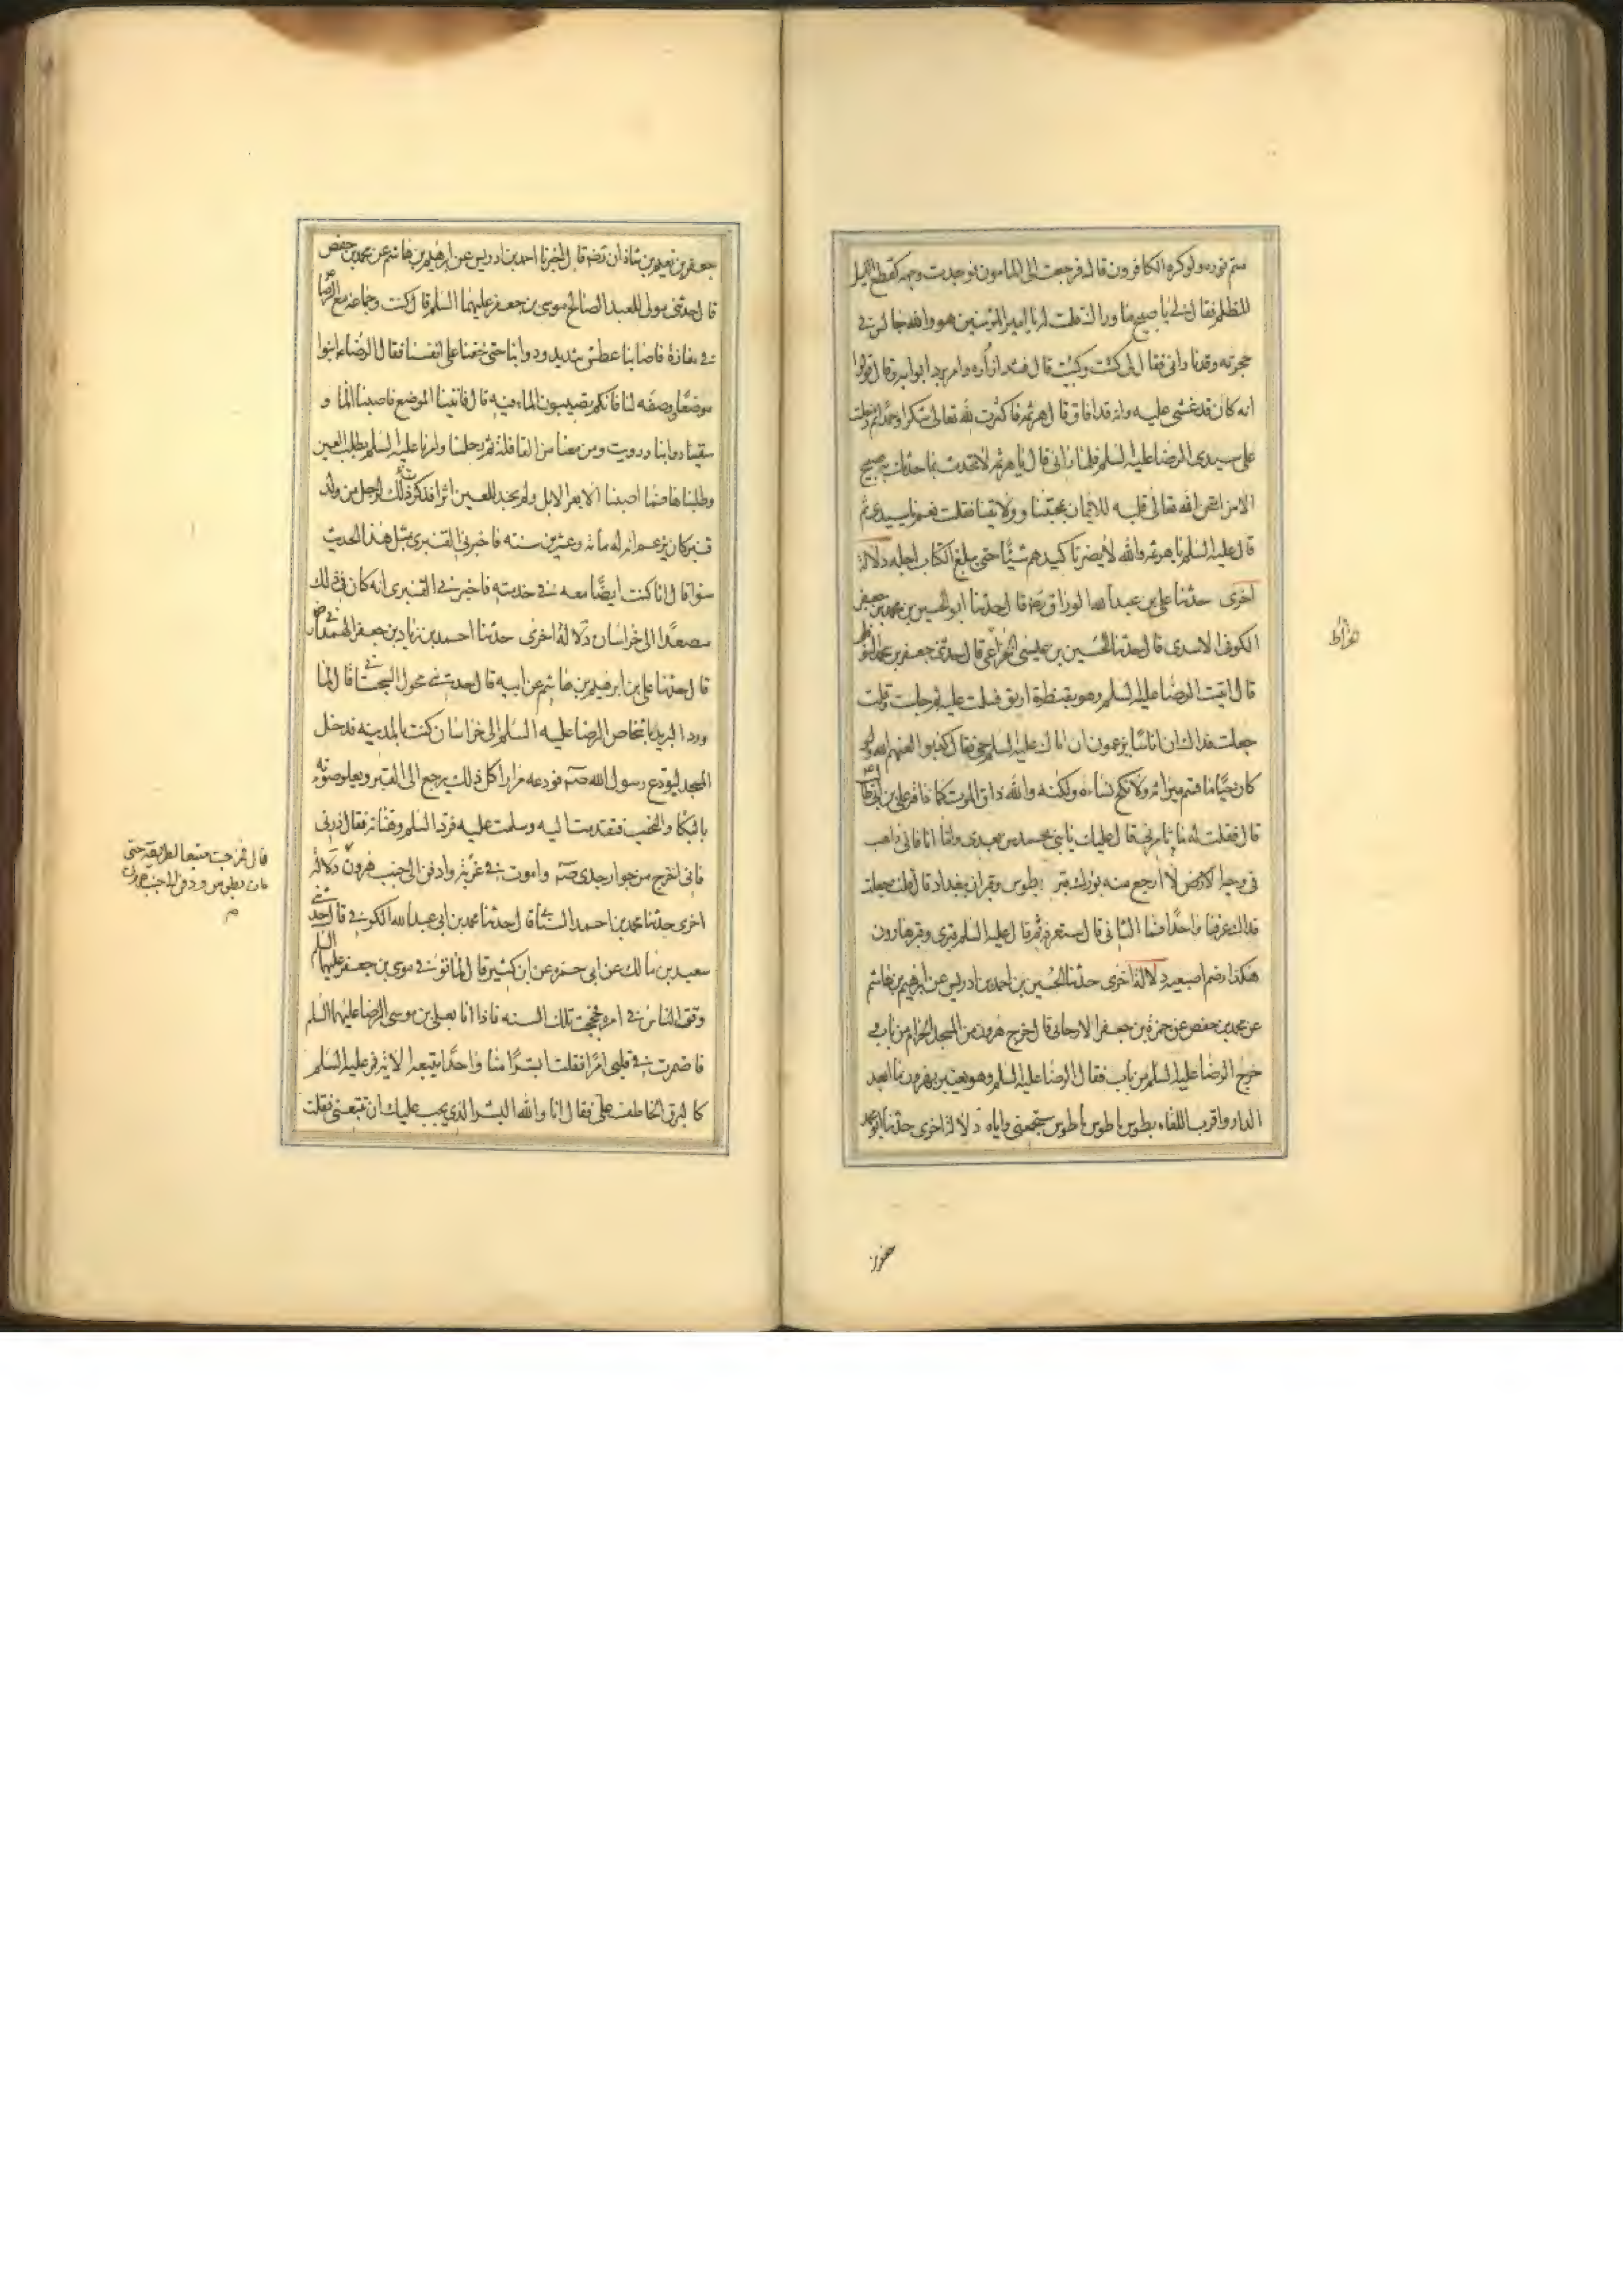 متم نوره ولو كره الكافرون قال فرجعت الى المامون فوجدت وجهه كقطع الليل
المظلم فقال لي يا صبيح ما وراك قلت له يا امير المؤمنين هو والله جالس في
حجرته وقد ناداني فقال لي كيت وكيت قال فشد ازراره وامر برد اثوابه وقال قولوا
انه كان قد غشي عليه وانه قد افاق قال هرثمه فاكثرت لله تعالى شكرا وحمدا ثم دخلت
على سيدي الرضا عليه السلم فلما راني قال يا هرثمه لا تحدث بما حدثك به صبيح
الا من امتحن الله تعالى قلبه للايمان بمحبتنا وولايتنا فقلت نعم يا سيدي ثم
قال عليه السلم يا هرثمه والله لا يضرنا كيدهم شيئا حتى يبلغ الكتاب اجله دلالة
اخرى حدثنا علي بن عبدالله الوراق رضه قال حدثنا ابو الحسين بن محمد بن جعفر
الكوفي الاسدي قال حدثنا الحسين بن عيسى الخراطي قال حدثني جعفر بن محمد النوفلي
خراط
قال اتيت الرضا عليه السلم وهو بقنطرة اربق فسلمت عليه ثم جلست وقلت
جعلت فداك ان اناسا يزعمون ان اباك عليه السلم حي فقال كذبوا لعنهم الله ولو
كان حيا ما قسم ميراثه ولا نكح نساءه ولكنه والله ذاق الموت كما ذاقه علي بن ابي طالب
قال فقلت له ما تامرني قال عليك بابني محمد من بعدي واما انا فاني ذاهب
في وجه الارض لا ارجع منه بورك قبر بطوس وقبران ببغداد قال قلت جعلت
فداك عرفنا واحدا فما الثاني قال ستعرفه ثم قال عليه السلم قبري وقبر هارون
هكذا وضم اصبعيه دلالة اخرى حدثنا الحسين بن احمد بن ادريس عن ابرهيم بن هاشم
عن محمد بن حفص عن حمزة بن جعفر الارجاني قال خرج هرون من المسجد الحرام من باب و
خرج الرضا عليه السلم من باب فقال الرضا عليه السلم وهو يعتبر بهرون ما ابعد
الدار واقرب اللقاء بطوس يا طوس يا طوس ستجمعني واياه دلالة اخرى حدثنا ابو محمد
جعفر بن
جعفر بن نعيم بن شاذان رضه قال اخبرنا احمد بن ادريس عن ابرهيم بن هاشم عن محمد بن حفص
قال حدثني مولى للعبد الصالح موسى بن جعفر عليهما السلم قال كنت وجماعة مع الرضا ع
في مفازة فاصابنا عطش شديد ودوابنا حتى خفنا على انفسنا فقال الرضا ع ايتوا
موضعا وصفه لنا فانكم تصيبون الماء فيه قال فاتينا الموضع فاصبنا الما و
سقينا دوابنا ورويت ومن معنا من القافلة ثم رحلنا وامرنا عليه السلم بطلب العين
وطلبناها فما اصبنا الا بعر الابل ولم نجد للعين اثرا فذكرت ذلك لرجل من ولد
قنبر كان يزعم ان له مائة وعشرين سنة فاخبرني القنبري بمثل هذا الحديث
سواء قال انا كنت ايضا معه في خدمته فاخبرني القنبري انه كان في ذلك
مصعدا الى خراسان دلالة اخرى حدثنا احمد بن زياد بن جعفر الهمداني رض
قال حدثنا علي بن ابرهيم بن هاشم عن ابيه قال حدثني محول السجستاني قال لما
ورد البريد باشخاص الرضا عليه السلم الى خراسان كنت بالمدينة فدخل
المسجد ليودع رسول الله صه فودعه مرارا كل ذلك يرجع الى القبر ويعلو صوته
بالبكاء والنحيب فتقدمت اليه وسلمت عليه فرد السلم وهناته فقال ذرني
فاني اخرج من جوار جدي صه واموت في غربة وادفن الى جنب هرون دلالة
قال فخرجت متبعا لطريقه حتى
مات بطوس ودفن الى جنب هرون
م
اخرى حدثنا محمد بن احمد السناني قال حدثنا محمد بن ابي عبدالله الكوفي قال حدثني
سعيد بن مالك عن ابي حمزه عن ابن كثير قال لما توفي موسى بن جعفر عليهما السلم
وقف الناس في امره فحججت تلك السنة فاذا انا بعلي بن موسى الرضا عليهما السلم
فاضمرت في قلبي امرا فقلت ابشرا منا واحدا نتبعه الاية فمر عليه السلم
كالبرق الخاطف علي فقال انا والله البشر الذي يجب عليك ان تتبعني فقلت